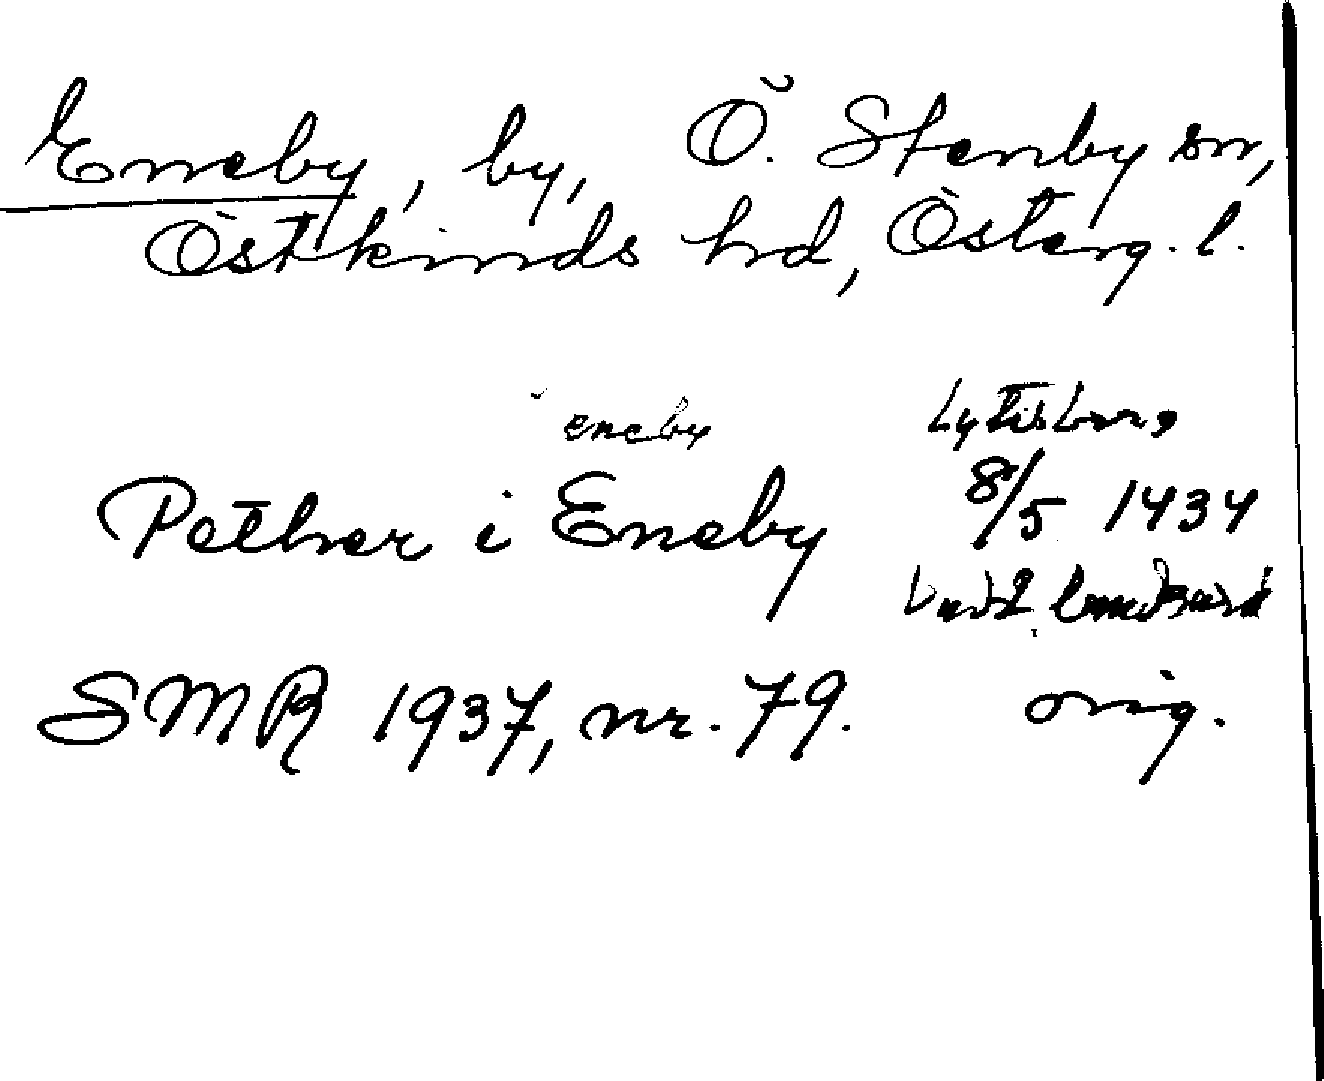 Eneby, by, Ö. Stenby sn,
Östkinds hd, Österg. l.
eneby
Pether i Eneby 8/5 1434
SMR 1937, nr. 79. orig.